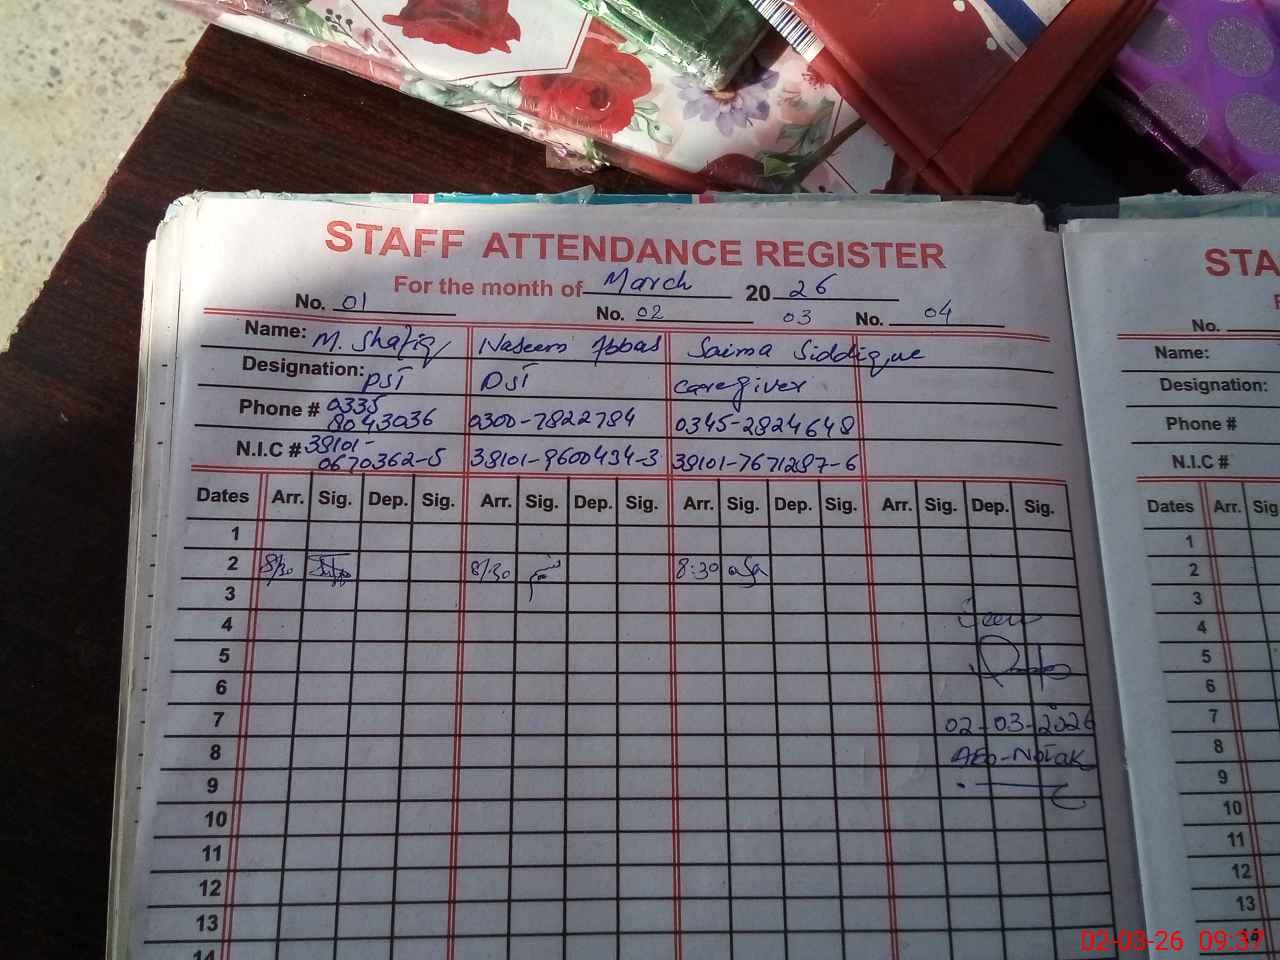 STAFF ATTENDANCE REGISTER
For the month of March 2026
No. 01 No. 02 03 No. 04
Name: M. Shafiq Naseem Abbas Saima Siddique
Designation: PST PST caregiver
Phone # 0335 8043036 0300-7822784 0345-2824648
N.I.C # 38101-0670362-5 38101-9600434-3 38101-7671287-6
Dates Arr. Sig. Dep. Sig. Arr. Sig. Dep. Sig. Arr. Sig. Dep. Sig. Arr. Sig. Dep. Sig.
1
2 8/30 8/30 8:30
3
4 Seen
5
6
7 02-03-2026
8 AEO-Notak
9
10
11
12
13
14
STA
No.
Name:
Designation:
Phone #
N.I.C #
Dates Arr. Sig
1
2
3
4
5
6
7
8
9
10
11
12
13
02-03-26 09:37